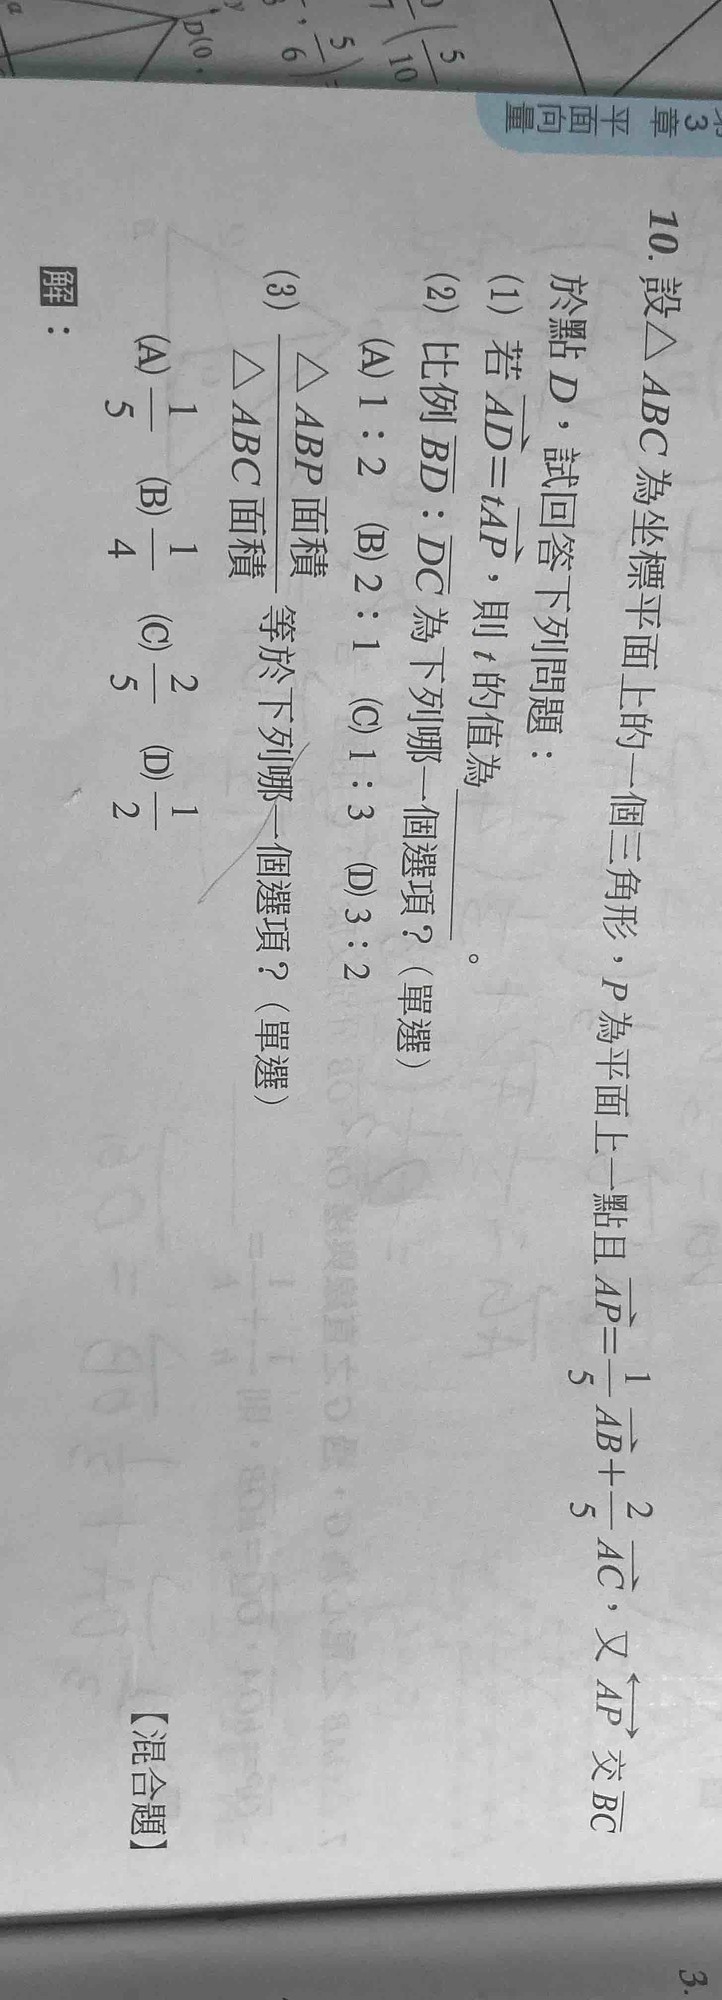 第3章 平面向量
10. 設△ABC 為坐標平面上的一個三角形，P 為平面上一點且 \overrightarrow{AP}=\frac{1}{5}\overrightarrow{AB}+\frac{2}{5}\overrightarrow{AC}，又 \overleftrightarrow{AP} 交 \overline{BC}
於點 D，試回答下列問題：
(1) 若 \overrightarrow{AD}=t\overrightarrow{AP}，則 t 的值為________。
(2) 比例 \overline{BD}：\overline{DC} 為下列哪一個選項？（單選）
(A) 1：2 (B) 2：1 (C) 1：3 (D) 3：2
(3) \frac{△ABP 面積}{△ABC 面積} 等於下列哪一個選項？（單選）
(A) \frac{1}{5} (B) \frac{1}{4} (C) \frac{2}{5} (D) \frac{1}{2}
【混合題】
解：
3.